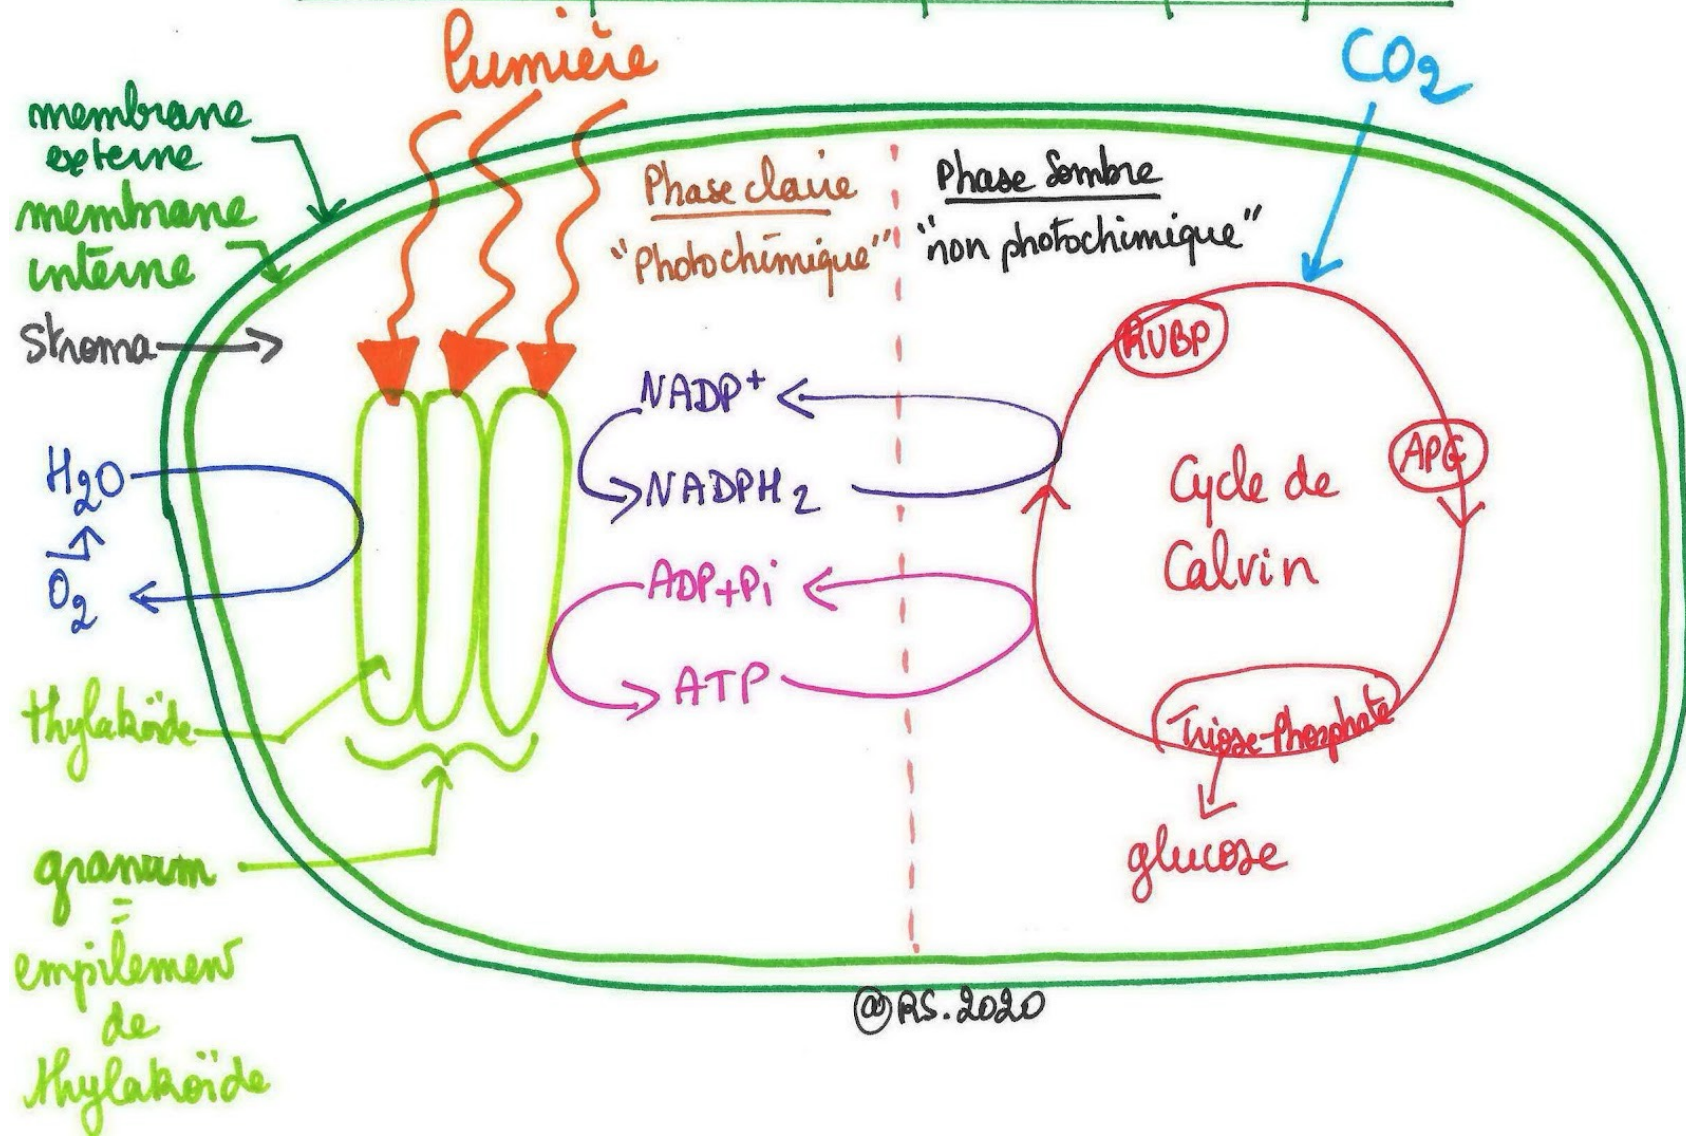 lumière
CO2
membrane
externe
membrane
interne
Stroma
Phase claire
"Photochimique"
Phase Sombre
"non photochimique"
RUBP
NADP+
NADPH2
APG
Cycle de
Calvin
H2O
O2
ADP+Pi
ATP
Triose-Phosphate
glucose
thylakoïde
granum
=
empilement
de
thylakoïde
@RS.2020